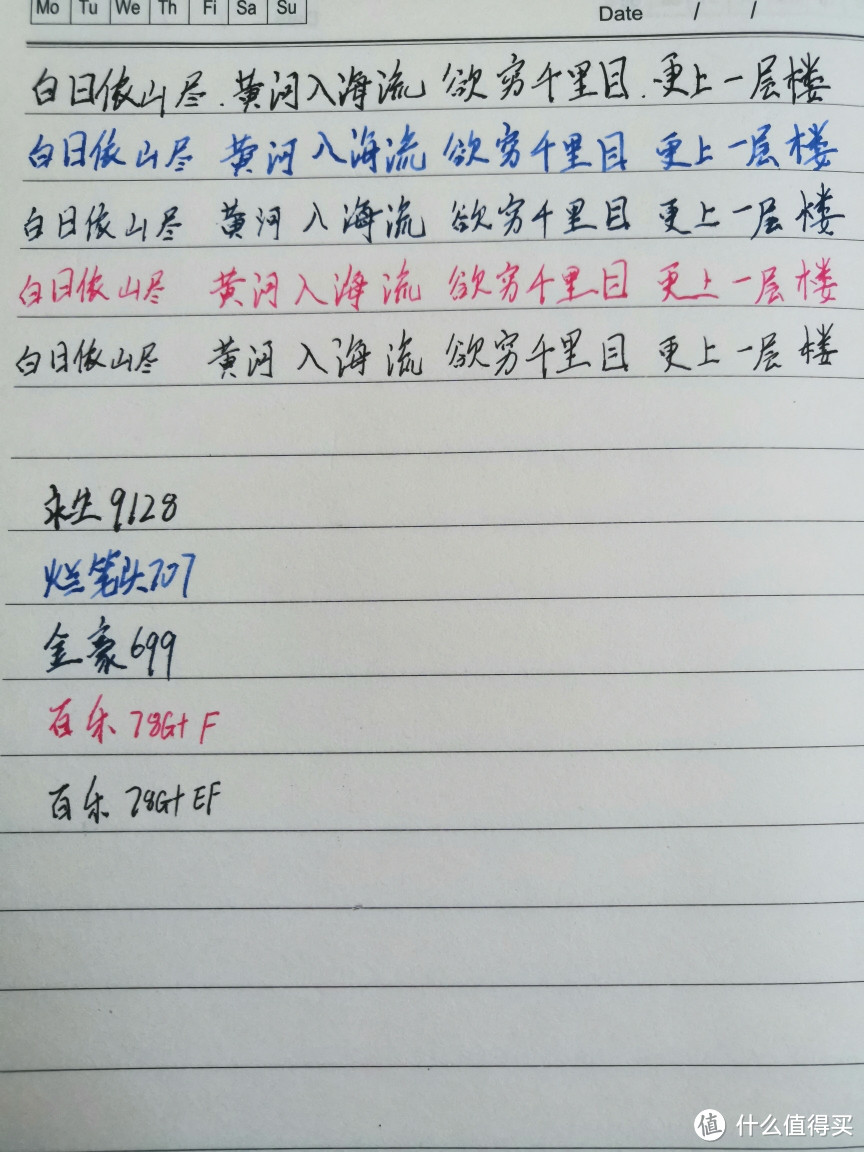 Mo Tu We Th Fri Sa Su
Date / /
白日依山尽.黄河入海流 欲穷千里目.更上一层楼
白日依山尽 黄河入海流 欲穷千里目 更上一层楼
白日依山尽 黄河入海流 欲穷千里目 更上一层楼
白日依山尽 黄河入海流 欲穷千里目 更上一层楼
白日依山尽 黄河入海流 欲穷千里目 更上一层楼
永生9128
烂笔头707
金豪699
百乐 78G+ F
百乐 78G+ EF
值 什么值得买